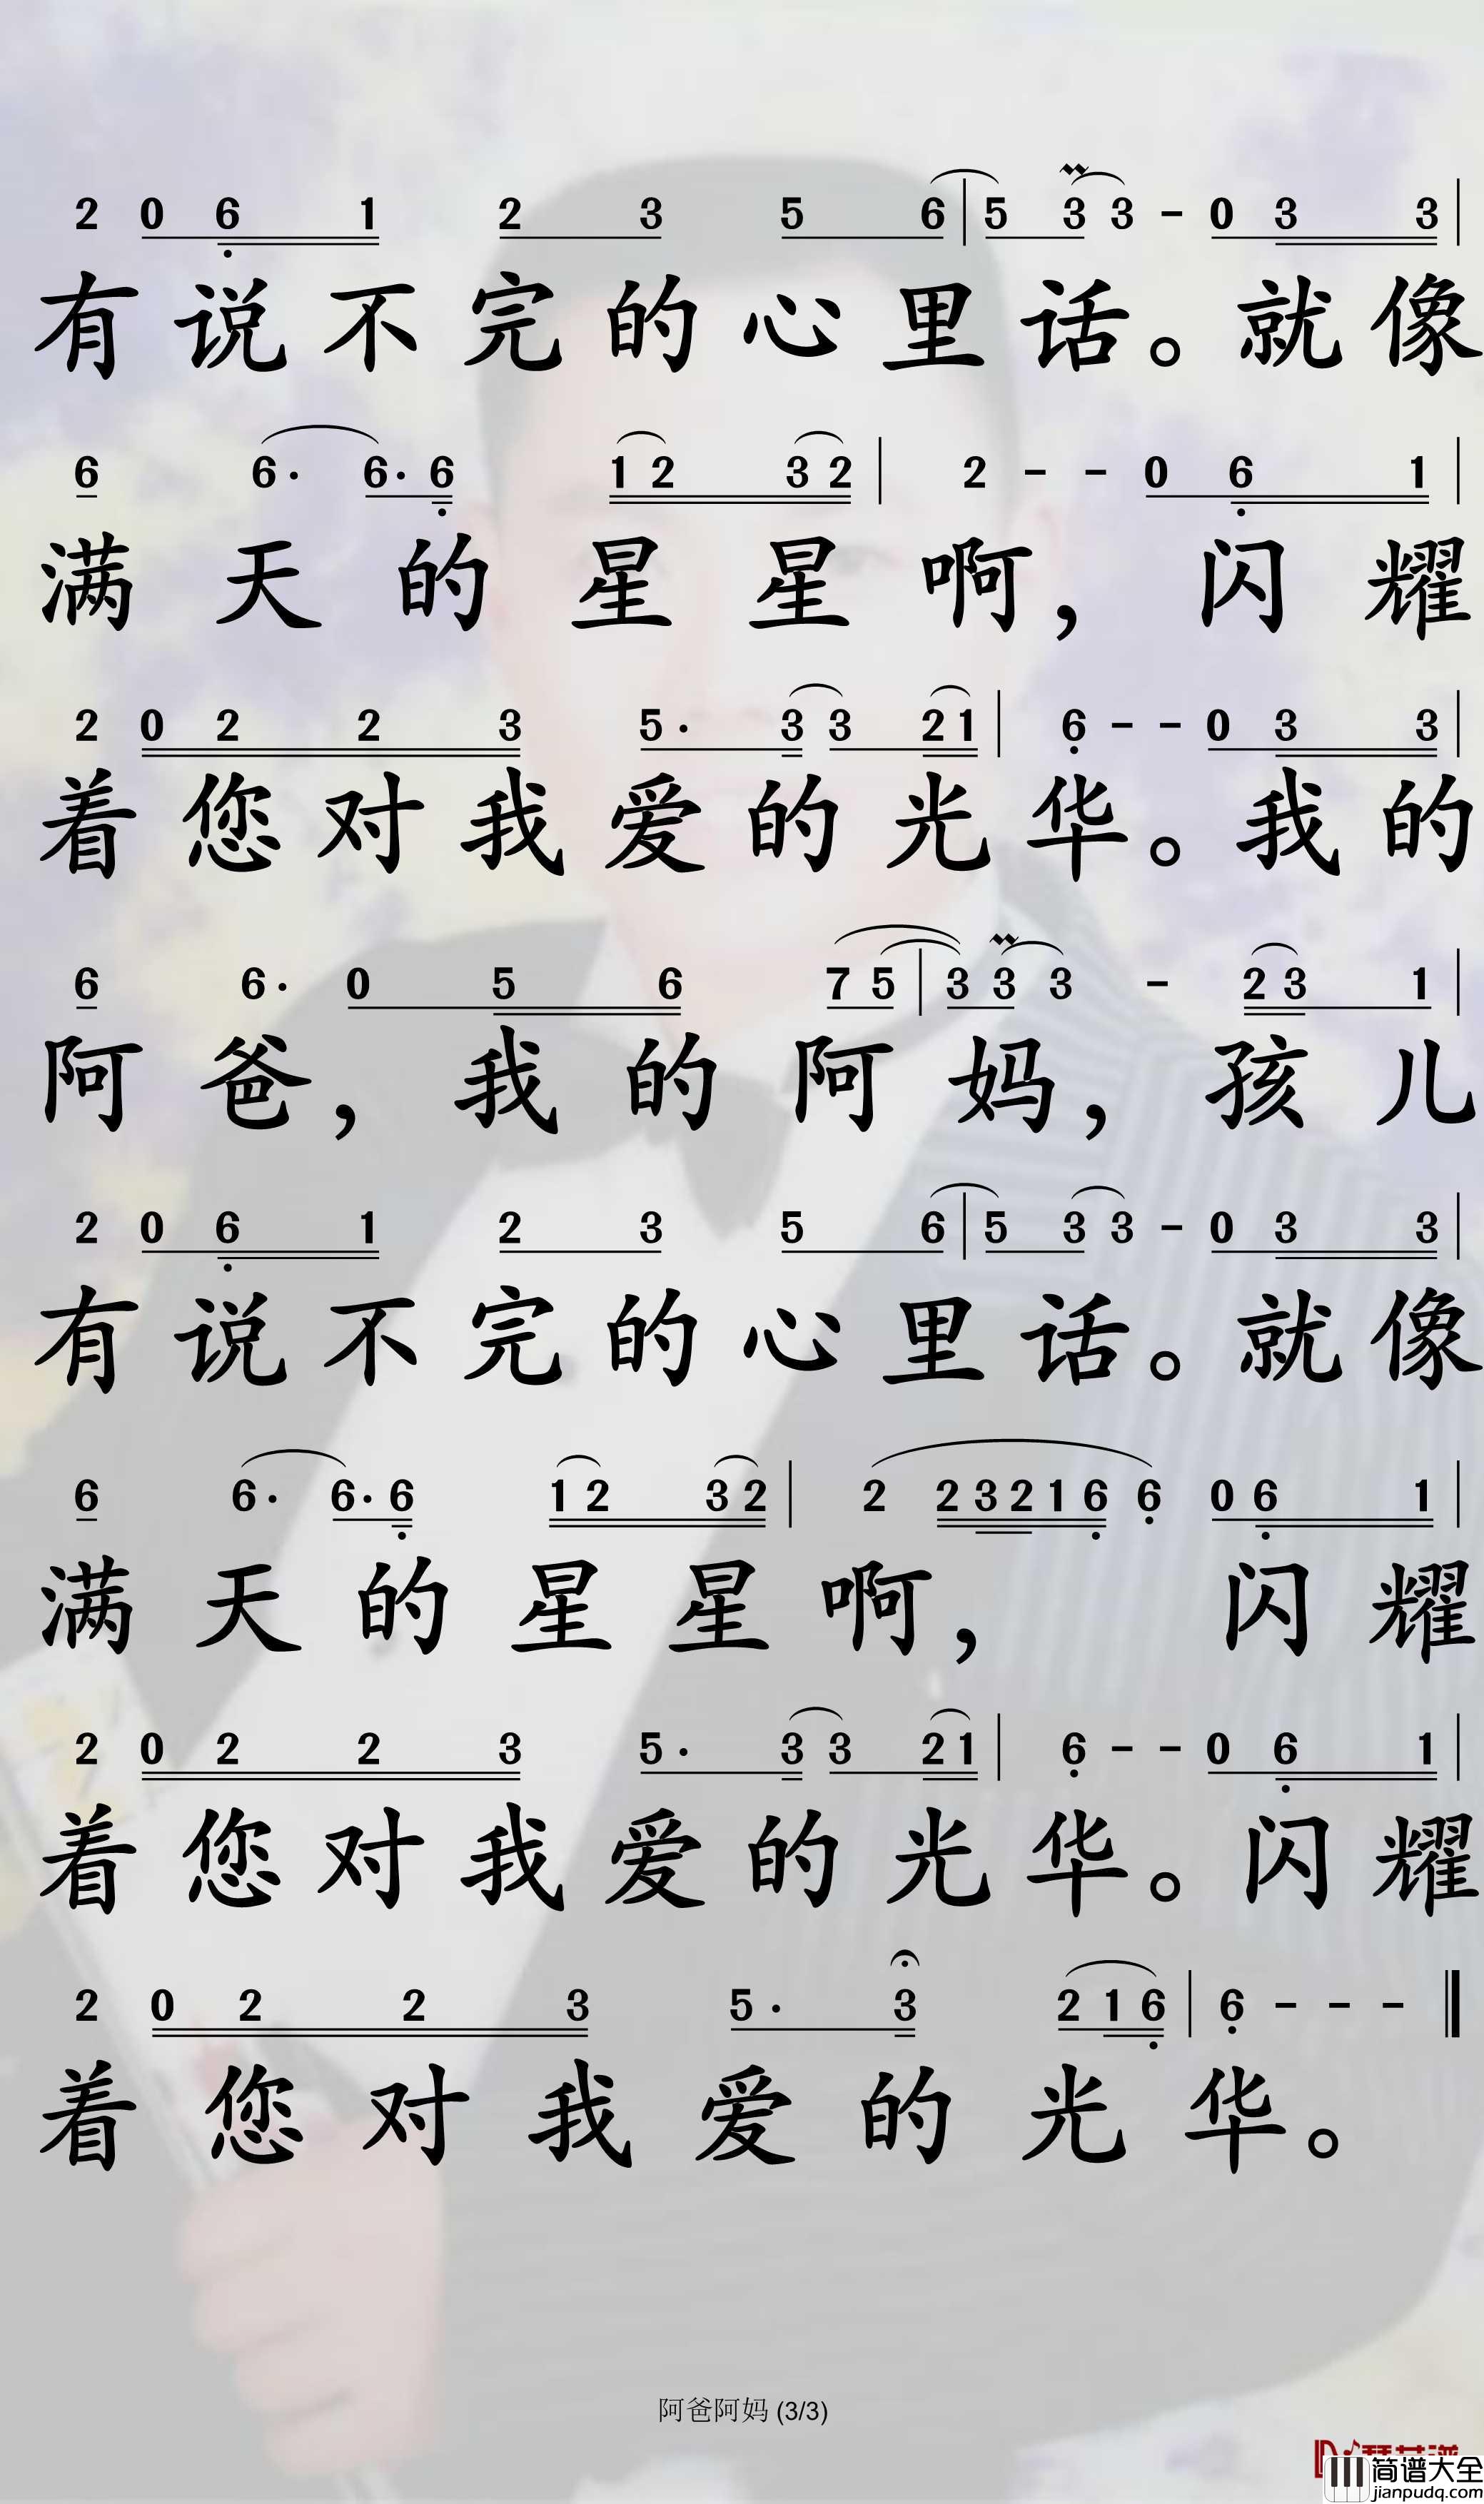 2 0 6 1 2 3 5 6 | 5 3 3 - 0 3 3 |
有说不完的心里话。就像
6 6· 6· 6 1 2 3 2 | 2 - - 0 6 1 |
满天的星星啊，闪耀
2 0 2 2 3 5· 3 3 2 1 | 6 - - 0 3 3 |
着您对我爱的光华。我的
6 6· 0 5 6 7 5 | 3 3 3 - 2 3 1 |
阿爸，我的阿妈，孩儿
2 0 6 1 2 3 5 6 | 5 3 3 - 0 3 3 |
有说不完的心里话。就像
6 6· 6· 6 1 2 3 2 | 2 2 3 2 1 6 6 0 6 1 |
满天的星星啊，闪耀
2 0 2 2 3 5· 3 3 2 1 | 6 - - 0 6 1 |
着您对我爱的光华。闪耀
2 0 2 2 3 5· 3 2 1 6 | 6 - - - ‖
着您对我爱的光华。
阿爸阿妈 (3/3)
简谱大全
jianpudq.com